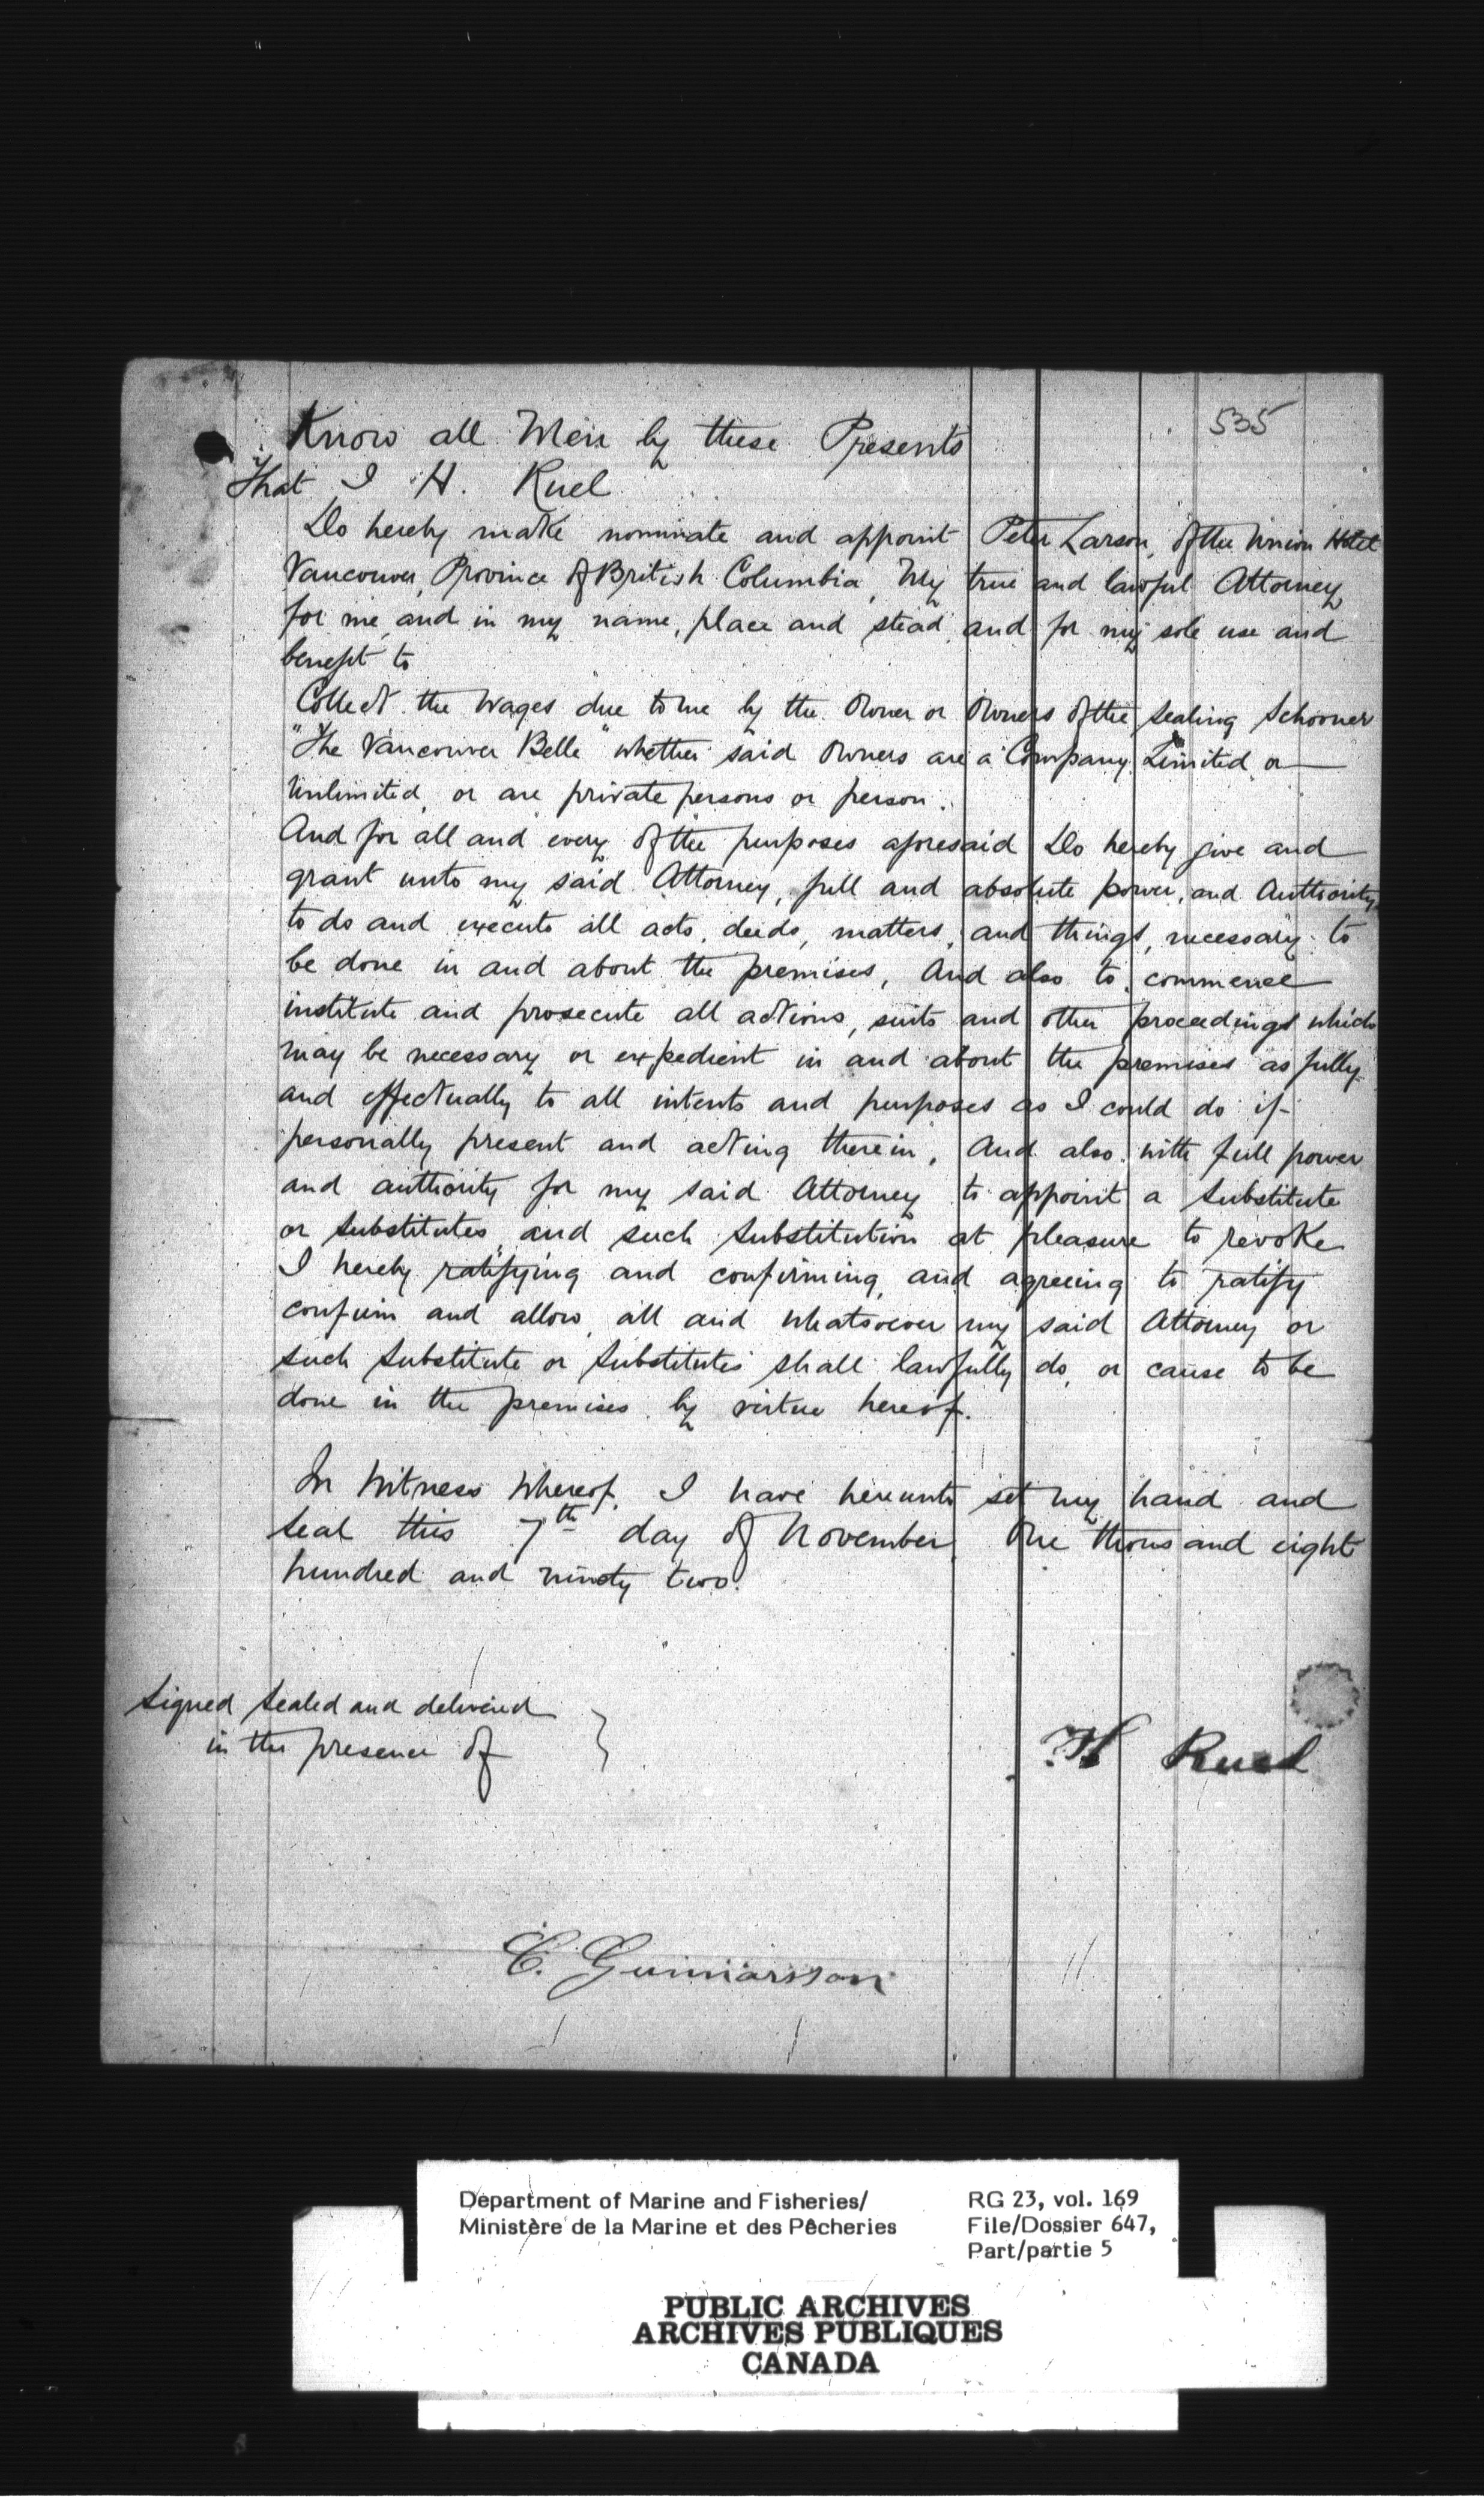 535
Know all Men by these Presents
That I H. Ruel
Do hereby make nominate and appoint Peter Larson, of the Union Hotel
Vancouver, Province of British Columbia, My true and lawful Attorney
for me, and in my name, place and stead, and for my sole use and
benefit to
Collect the Wages due to me by the Owner or Owners of the Sealing Schooner
"The Vancouver Belle" whether said Owners are a Company Limited or
Unlimited, or are private persons or person.
And for all and every of the purposes aforesaid Do hereby give and
grant unto my said Attorney, full and absolute power, and Authority
to do and execute all acts, deeds, matters, and things, necessary to
be done in and about the premises, And also to commence
institute and prosecute all actions, suits and other proceedings which
may be necessary or expedient in and about the premises as fully
and effectually to all intents and purposes as I could do if
personally present and acting therein, And also with full power
and authority for my said Attorney to appoint a Substitute
or Substitutes, and such Substitution at pleasure to revoke
I hereby ratifying and confirming, and agreeing to ratify
confirm and allow, all and whatsoever my said Attorney or
such Substitute or Substitutes shall lawfully do, or cause to be
done in the premises by virtue hereof.
In Witness Whereof, I have hereunto set my hand and
Seal this 7th day of November, One thousand eight
hundred and ninety two.
Signed Sealed and delivered
in the presence of }
H Ruel
C. Gunnarsson
Department of Marine and Fisheries/
Ministère de la Marine et des Pêcheries
RG 23, vol. 169
File/Dossier 647,
Part/partie 5
PUBLIC ARCHIVES
ARCHIVES PUBLIQUES
CANADA